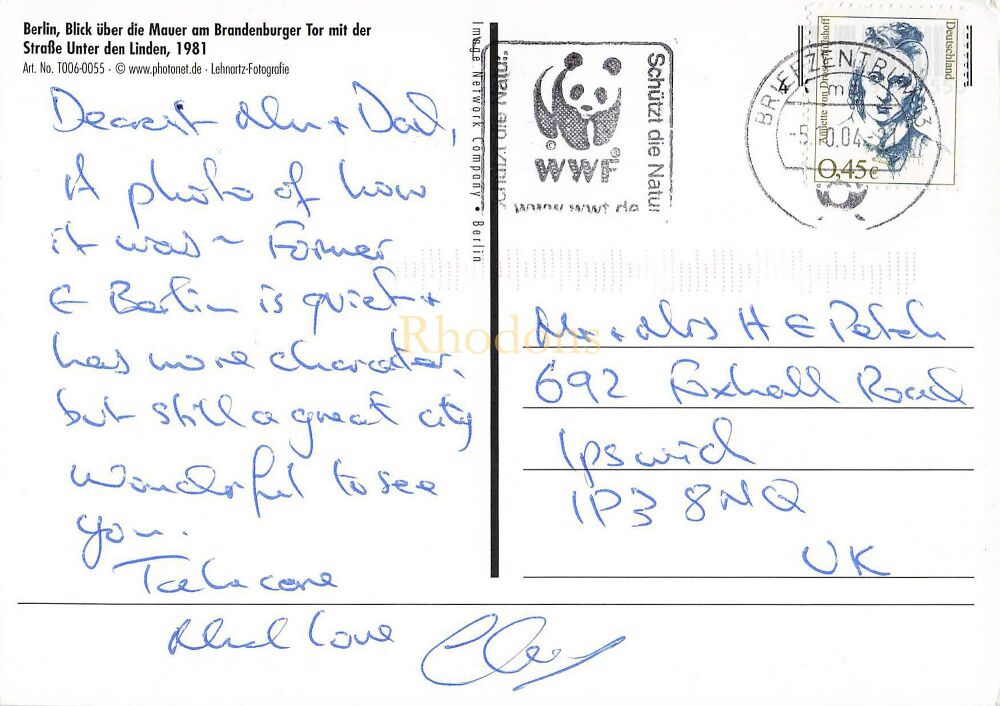 Berlin, Blick über die Mauer am Brandenburger Tor mit der
Straße Unter den Linden, 1981
Art. No. T006-0055 · © www.photonet.de · Lehnartz-Fotografie
Dearest Mu + Dad,
A photo of how
it was ~ Former
E Berlin is quiet +
has more character.
but still a great city
Wonderful to see
you.
Take care
Much love
Image Network Company • Berlin
Schützt die Natur
© ®
WWF
Schützt die Natur
www.wwf.de
BRIEFZENTRUM 13
4 m
-5.10.04-21
Annette von Droste-Hülshoff
Deutschland
0,45€
Rhodons
Mr + Mrs H E Petch
692 Foxhall Road
Ipswich
IP3 8NQ
UK